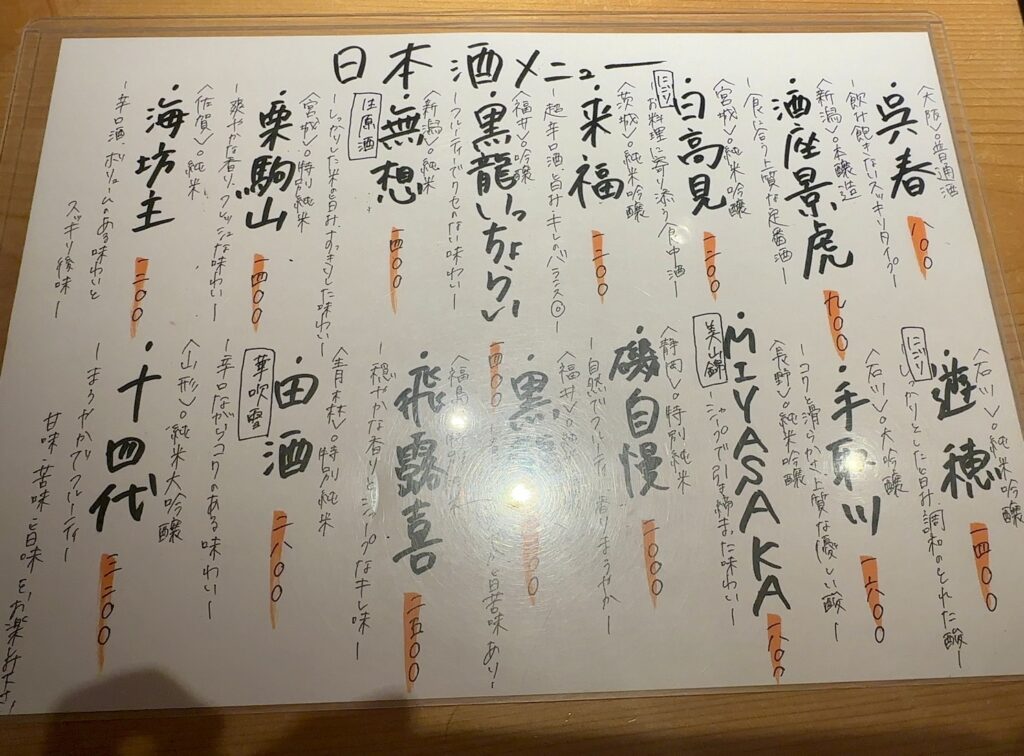 日本酒メニュー
〈大阪〉○普通酒
・呉春 八〇〇
ー飲み飽きないスッキリタイプー
〈新潟〉○本醸造
・酒座景虎 九〇〇
ー食に合う上質な定番酒ー
〈宮城〉○純米吟醸
・日高見 一二〇〇
にごり
お料理に寄り添う食中酒ー
〈茨城〉○純米吟醸
・来福 一二〇〇
ー超辛口酒、旨み・キレのバランス◎ー
〈福井〉○吟醸
・黒龍いっちょらい 一四〇〇
ーフルーティーでクセのない味わいー
〈新潟〉○純米
・無想 一四〇〇
生原酒
ーしっかりした米の旨み、すっきりした味わいー
〈宮城〉○特別純米
・栗駒山 一四〇〇
ー爽やかな香り、フレッシュな味わいー
〈佐賀〉○純米
・海坊主 一二〇〇
ー辛口酒、ボリュームのある味わいと
スッキリ後味ー
〈石川〉○純米
・遊穂 一四〇〇
にごり
しっかりとした旨み、調和のとれた酸ー
〈石川〉○大吟醸
・手取川 一六〇〇
ーコクと滑らかさ、上質な優しい酸ー
〈長野〉○純米吟醸
・MIYASAKA 一八〇〇
美山錦
ーシャープで引き締まった味わいー
〈静岡〉○特別純米
・磯自慢 二〇〇〇
ー自然でフルーティー 香りまろやかー
〈福井〉○純
・黒
と旨苦味ありー
〈福島
・飛露喜 二五〇〇
ー穏やかな香りとシャープなキレ味
〈青森〉○特別純米
・田酒 二八〇〇
華吹雪
ー辛口ながらコクのある味わいー
〈山形〉○純米大吟醸
・十四代 三二〇〇
ーまろやかでフルーティー
甘味、苦味、旨味を、お楽しみ下さい